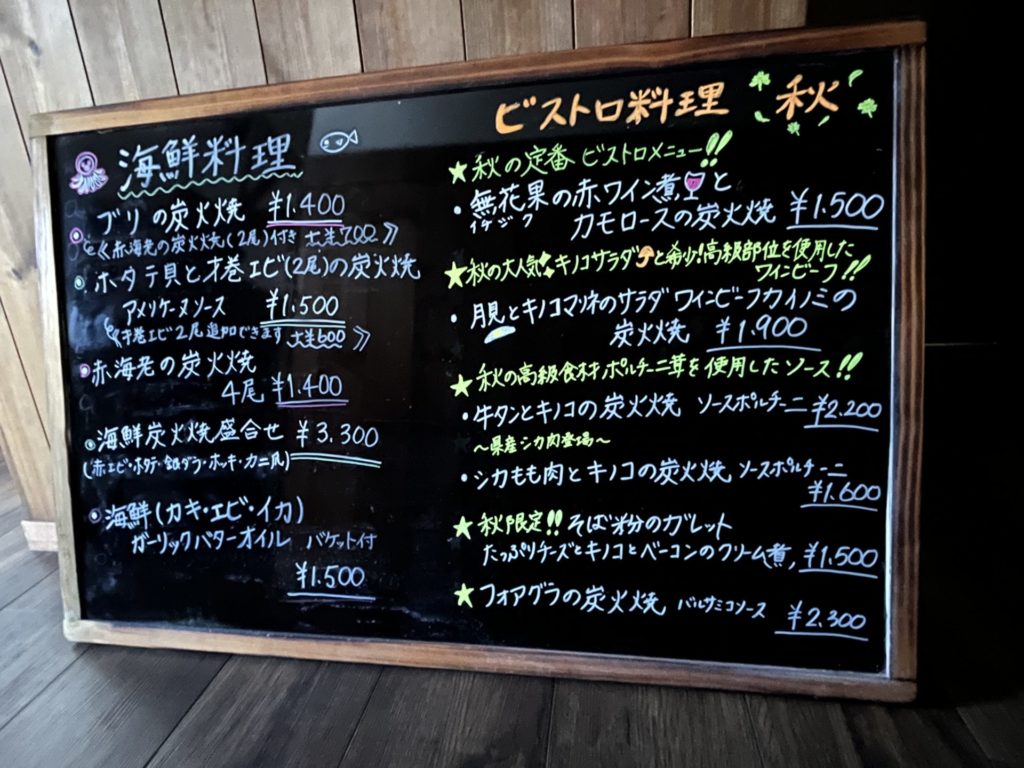 海鮮料理
ブリの炭火焼 ¥1.400
《赤海老の炭火焼(2尾)付き +¥700》
ホタテ貝と才巻エビ(2尾)の炭火焼
アメリケーヌソース ¥1.500
《才巻エビ2尾追加できます +¥600》
赤海老の炭火焼
4尾 ¥1.400
海鮮炭火焼盛合せ ¥3.300
(赤エビ・ホタテ・銀ダラ・ホッキ・カニ爪)
海鮮(カキ・エビ・イカ)
ガーリックバターオイル バケット付
¥1.500
ビストロ料理 秋
★秋の定番 ビストロメニュー!!
・無花果の赤ワイン煮と
イチジク
カモロースの炭火焼 ¥1.500
★秋の大人気!キノコサラダと希少!高級部位を使用した
ワインビーフ!!
・月見とキノコマリネのサラダ ワインビーフカイノミの
炭火焼 ¥1.900
★秋の高級食材ポルチーニ茸を使用したソース!!
・牛タンとキノコの炭火焼 ソースポルチーニ ¥2.200
〜県産シカ肉登場〜
・シカもも肉とキノコの炭火焼 ソースポルチーニ
¥1.600
★秋限定!! そば粉のガレット
たっぷりチーズとキノコとベーコンのクリーム煮, ¥1.500
★フォアグラの炭火焼 バルサミコソース
¥2.300